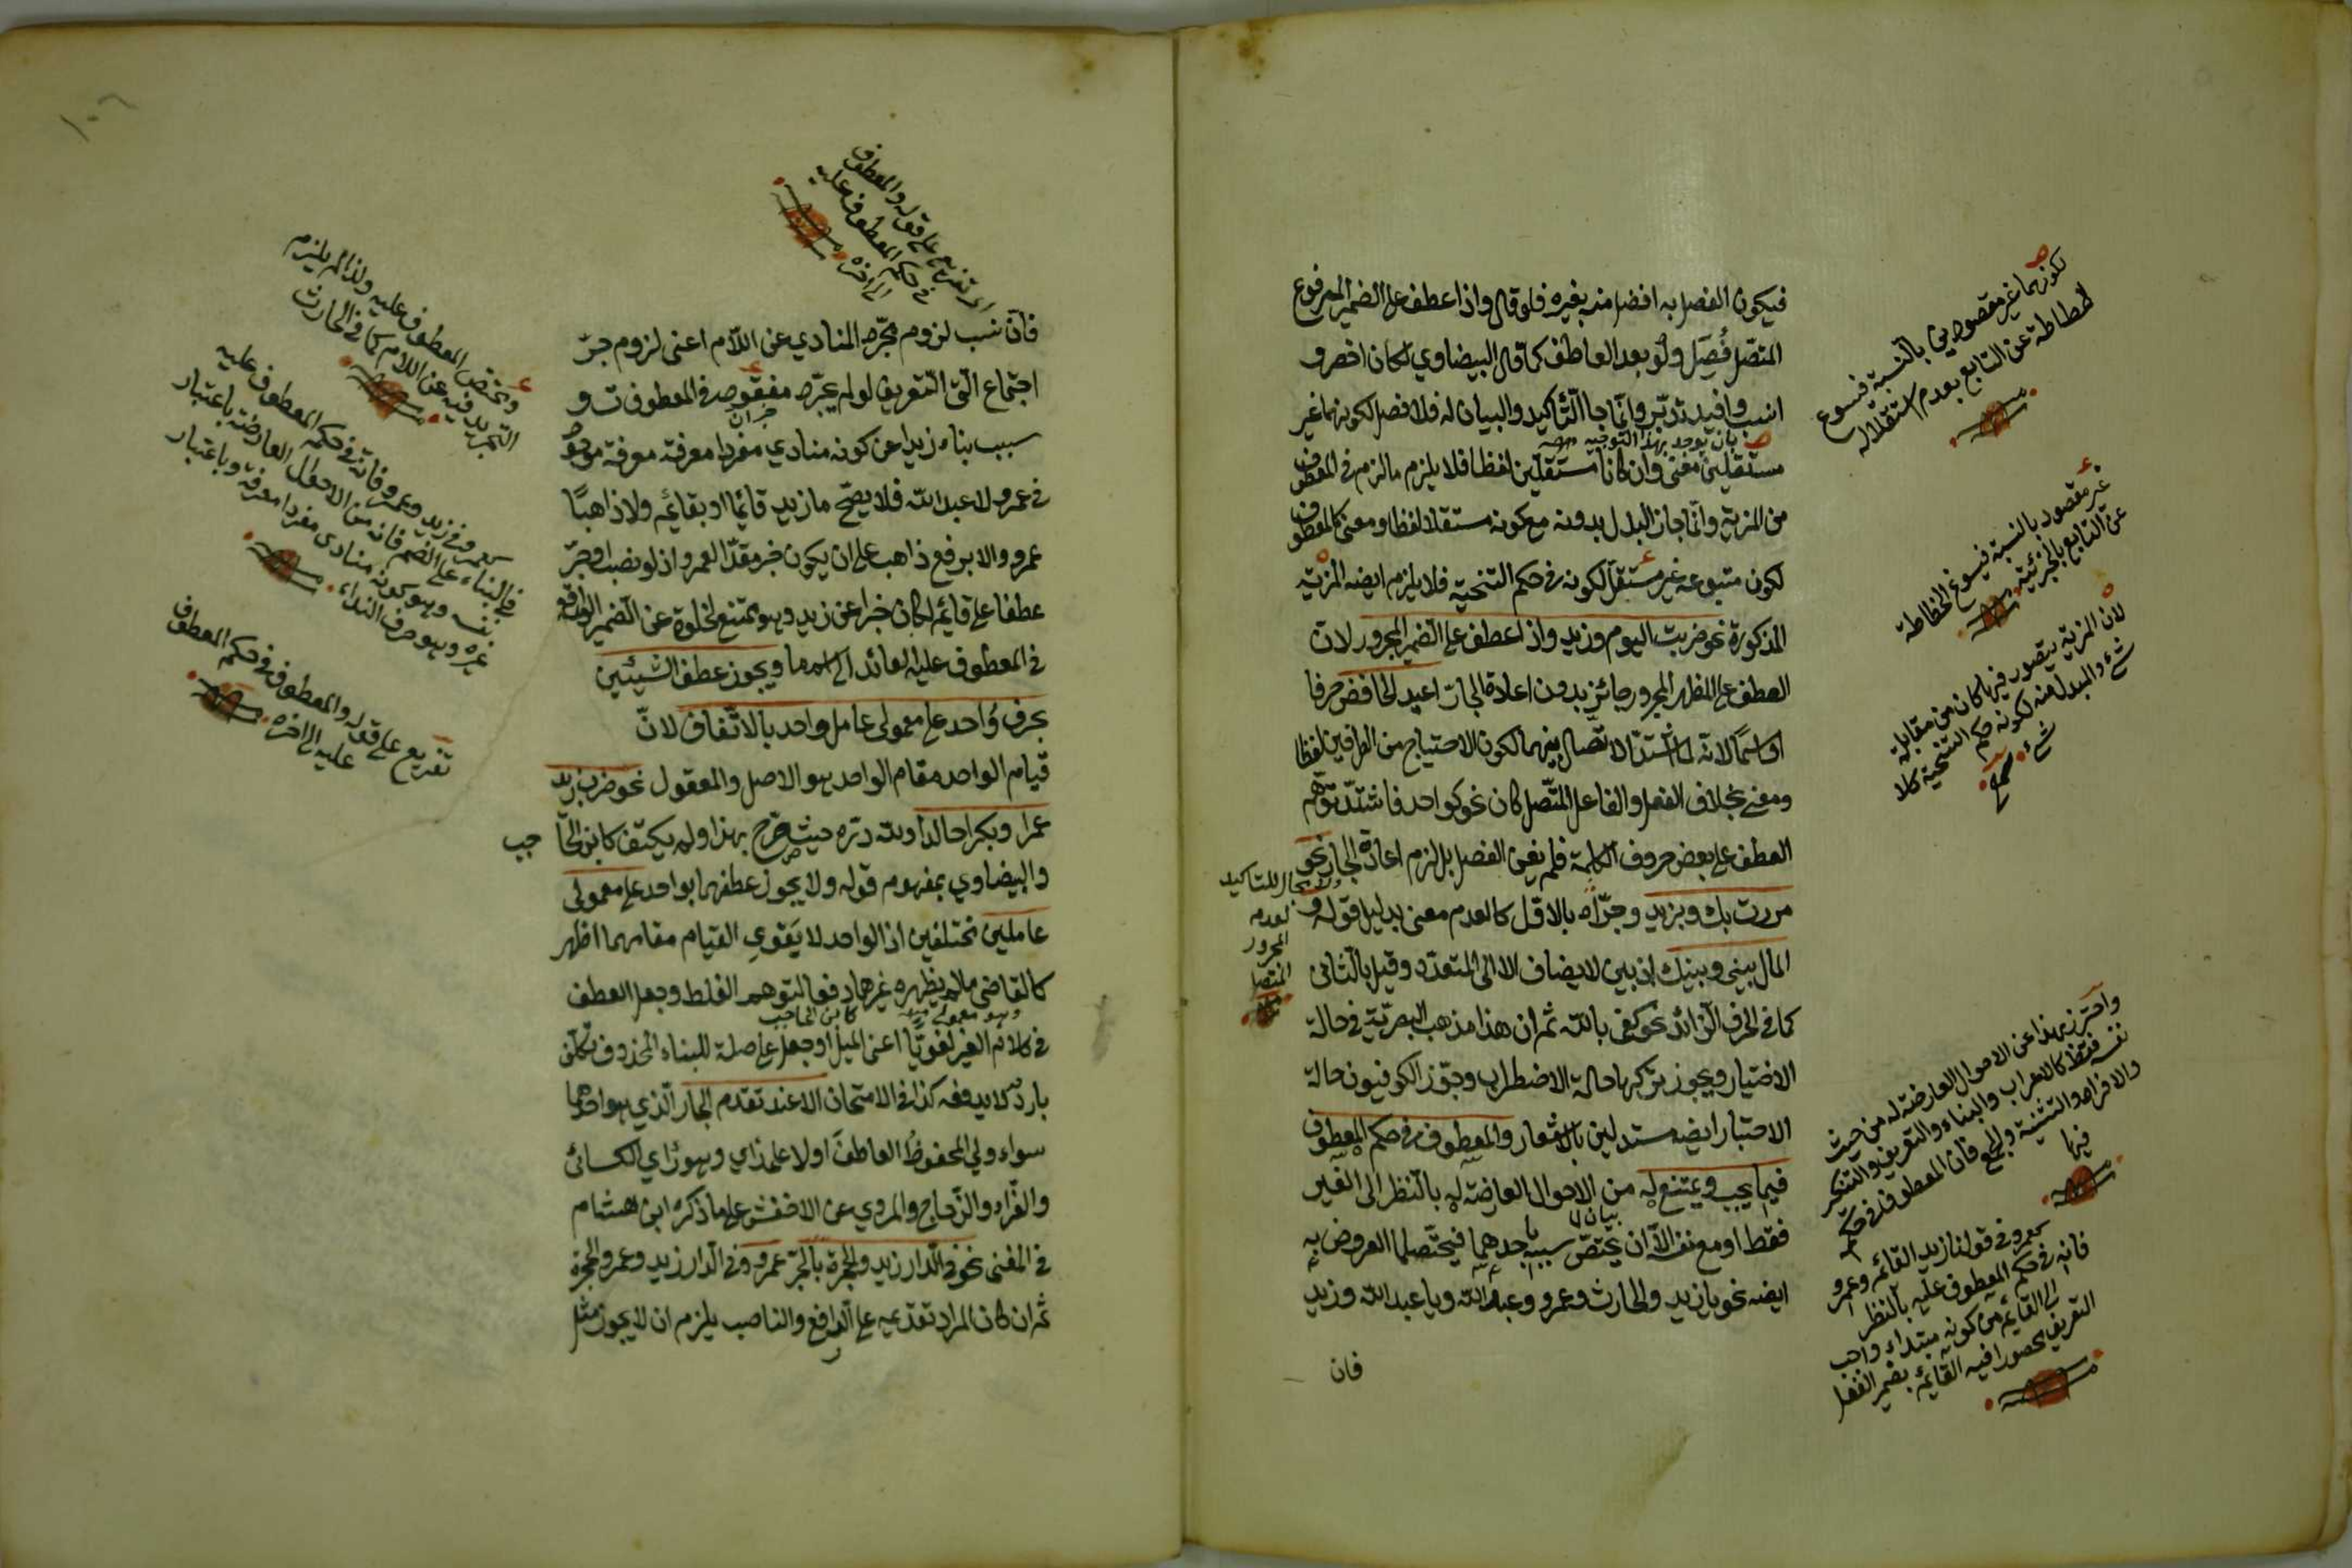 فيكون الفصل به افضل منه بغيره فلو قال واذا عطف على الضمير المرفوع
المتصل فُصِل ولو بعد العاطف كما قال البيضاوي لكان اخصر و
انسب وافيد تدبّر وانّما جاا التّأكيد والبيان له فلا فصل لكونهما غير
مستقلين معنى وان كانا مستقلّين لفظا فلا يلزم ما لزم في المعطوف
من المزية وانّما جاز البدل بدونه مع كونه مستقلا لفظا ومعنى كالمعطوف
لكون متبوعه غير مستقلّ لكونه في حكم التنحية فلا يلزم ايضه المزية
المذكورة نحو ضربت اليوم وزيد واذا عطف على الضمير المجرور لان
العطف على المظهر المجرور جائز بدون اعادة الجارّ اعيد الخافض حرفا
او اسمًا لانّه لما اشتدّ الاتّصال بينهما لكون الاحتياج من الطرفين لفظا
ومعنى بخلاف الفعل والفاعل المتّصل كان نحو كواحد فاشتدّ توهّم
العطف على بعض حروف الكلمة فلم يغن الفصل بل لزم اعادة الجار نحو
مررت بك وبزيد وجرّاه بالاوّل كالعدم معنى بدليل قوله و
المال بيني وبينك اذ بين لا يضاف الا الى المتعدّد وقيل بالثّاني
كما في الحرف الزّائد نحو كفى بالله ثم ان هذا مذهب البصريّة في حالة
الاختيار ويجوز تركها حالة الاضطرار وجوّز الكوفيون حالة
الاختيار ايضه مستدلين بالاشعار والمعطوف في حكم المعطوف
فيما يجب ويمتنع له من الاحوال العارضة له بالنّظر الى الغير
فقط او مع نفسه الّا ان يختصّ سببها باحدهما فيختصّ لها العروض به
ايضه نحو يا زيد والحارث وعمرو وعبد الله ويا عبد الله وزيد
فان
لكونهما غير مقصودين بالنسبة فيسوغ
انحطاطه عن التابع بعدم استقلاله
غير مقصود بالنسبة فيسوغ انحطاطه
عن التابع بالجزئية
لان المزية يتصور فيما كان من مقابلة
شئ والمبدل منه لكونه في حكم التنحية كلا
شئ
واحترز بهذا عن الاحوال العارضة له من حيث
نفسه فقط كالاعراب والبناء والتعريف والتنكير
والافراد والتثنية والجمع فان المعطوف ليس في حكمه
فيها
كعمرو في قولنا زيد القائم وعمرو
فانه في حكم المعطوف عليه بالنظر
الى القائم من كونه مبتداء واجب
التعريف محصورا فيه القائم بضمير الفصل
١٠٦
اى تفريع على قوله والمعطوف
في حكم المعطوف عليه
الى اخره
فانّ سبب لزوم تجرّد المنادي عن اللّام اعنى لزوم جرّ
اجتماع الّتى التّعريف لو لم يجرّد مفقود في المعطوف ت و
سبب بناء زيد اعن كونه منادي مفردا معرفة معرفة موجود
في عمرو لا عبد الله فلا يصحّ ما زيد قائما او بقائم ولا ذاهبًا
عمرو والا برفع ذاهب على ان يكون خبر مقدّا لعمرو اذ لو نصب او جرّ
عطفا على قائم لكان خبرا عن زيد وهو ممتنع لخلوه عن الضمير الواقع
في المعطوف عليه العائد الى اسم ما ويجوز عطف الشيئين
بحرف واحد على معمولى عامل واحد بالاتّفاق لانّ
قيام الواحد مقام الواحد هو الاصل والمعقول نحو ضرب زيد
عمرا وبكر خالدا ولله درّه حيث صرّح بهذا ولم يكتف كابن الحا
جب
والبيضاوي بمفهوم قوله ولا يجوز عطفهما بواحد على معمولى
عاملين مختلفين اذ الواحد لا يَقوي القيام مقامهما اظهر
كالقاضى ما لم يظهره غيرهما دفعا لتوهم الغلط وجعل العطف
في كلام الغير لغويّا اعنى الميل او جعل على صلة للبناء المحذوف تكلّف
بارد لا يدفعه كذا في الامتحان الا عند تقدّم الجار الّذي هو احدهما
سواء ولي المخفوظُ العاطفَ اولا على راي وهو رُاي الكسائى
والفرّاء والزّجاج والمروي عن الاخفش على ما ذكره ابن هشام
في المغنى نحو في الّدار زيد والحجرة بالجرّ عمرو وفي الدار زيد وعمرو الحجرة
ثم ان كان المراد تقدّميه على الرافع والناصب يلزم ان لا يجوز مثل
ويختص المعطوف عليه ولذا لم يلزم
التجريد فيه عن اللام كما في الحارث
كعمرو في زيد وعمرو فانّه في حكم المعطوف عليه
في البناء على الضم فانه من الاحوال العارضة باعتبار
نفسه وهو كونه منادى مفردا معرفة وباعتبار
غيره وهو حرف النداء
تفريع على قوله والمعطوف في حكم المعطوف
عليه الى اخره